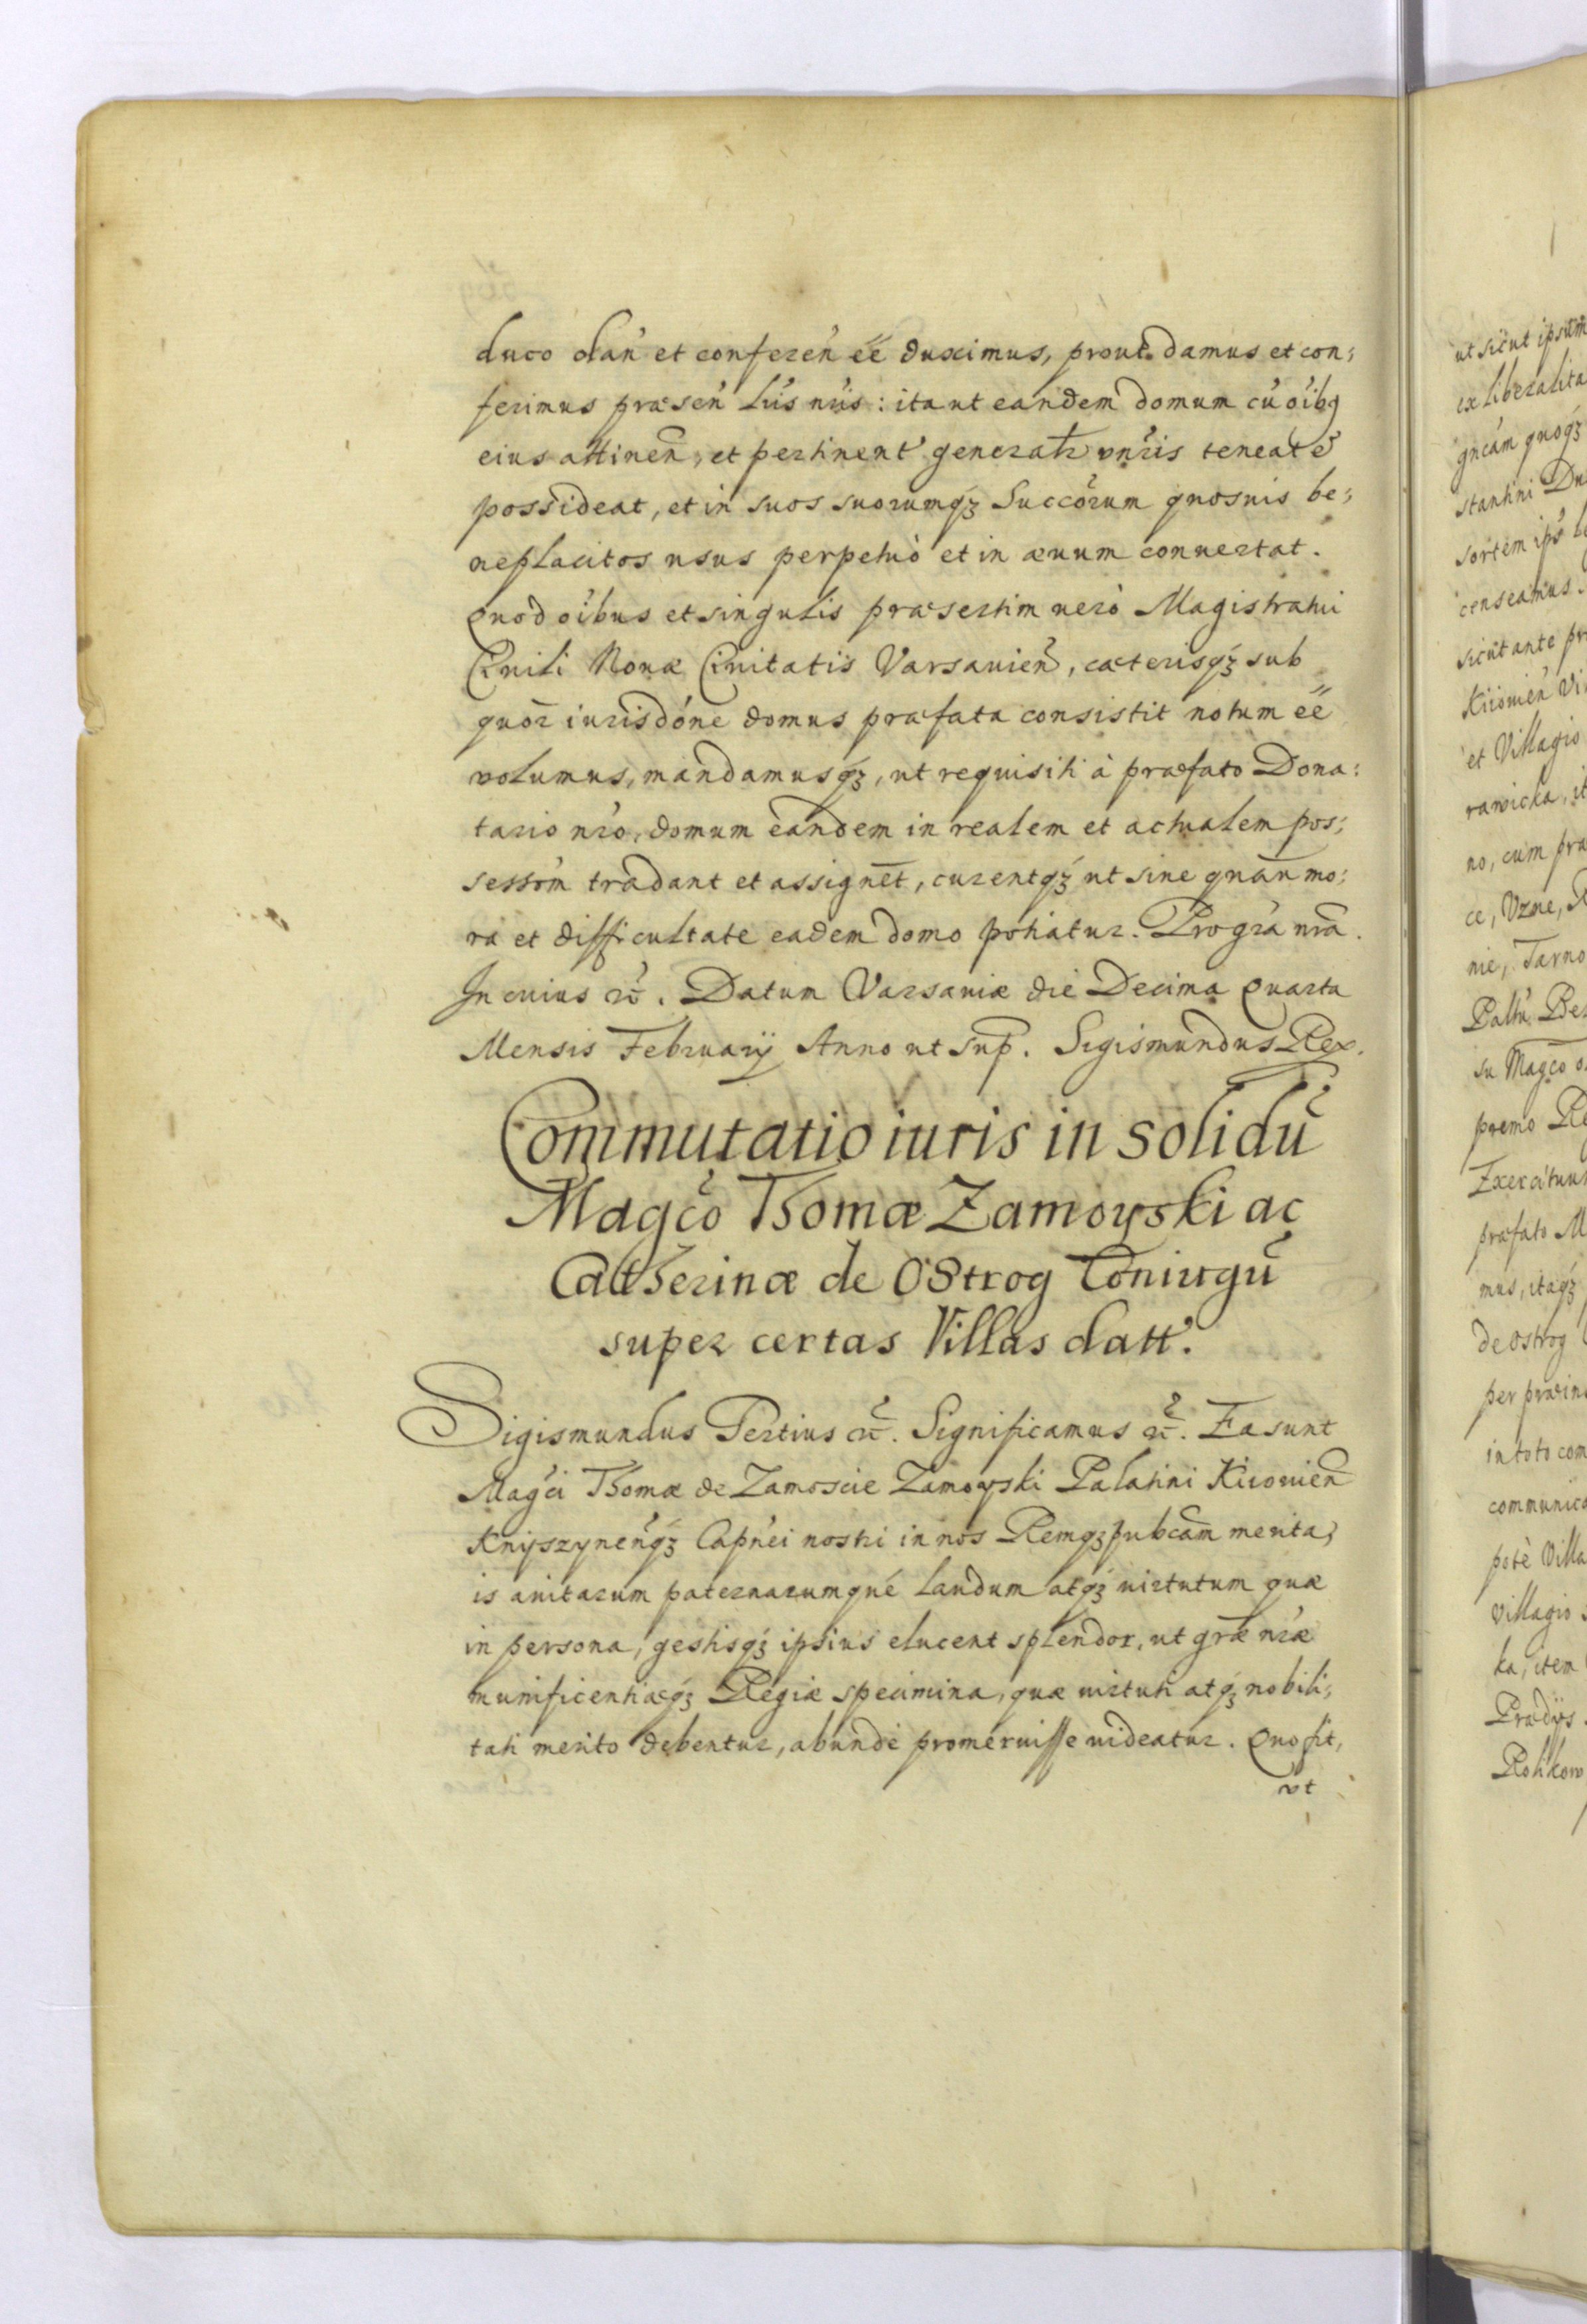 duco dan̄ et conferen̄ ee̋ duximus, prout damus et con;
ferimus præsen̄ lr̄is nr̄is: ita ut eandem domum cū oībꝫ
eius attinen̄, et pertinent̄ generalr̄ vnr̄is teneat et̄
possideat, et in suos suorumqꝫ Succōrum quosuis be;
neplacitos usus perpetuò et in æuum conuertat.
Quod oībus et singulis præsertim uerò Magistratui
Ciuili Nouæ Ciuitatis Varsauien̄, cæterisqꝫ sub
quor̄ iurisdōne domus præfata consistit notum ee̋
volumus, mandamusqꝫ, ut requisiti à præfato Dona:
tario nr̄o, domum eandem in realem et actualem pos;
sessōn̄ tradant et assignēt, curentqꝫ ut sine quāuis mo:
ra et difficultate eadem domo potiatur. Pro gr̄a nr̄a.
In cuius rō. Datum Varsauiæ die Decima Quarta
Mensis February Anno ut sup̄. Sigismundus Rex.
Commutatio iuris in solidū
Magc̄o Thomæ Zamoyski ac
Catherinæ de Ostrog Coniugū
super certas Villas datt̄.
Sigismundus Tertius rc̄. Significamus rc̄. Ea sunt
Magc̄i Thomæ de Zamoscie Zamoyski Palatini Kiiouien̄
Knyszynen̄qꝫ Capn̄ei nostri in nos Remqꝫ pubcām merita,
is auitarum paternarumqué laudum atqꝫ uirtutum quæ
in persona, gestisqꝫ ipsius elucent splendor, ut gr̄æ nr̄æ
munificentiæqꝫ Regiæ specimina, quæ uirtuti atqꝫ nobili;
tati merito debentur, abundè promeruisse uideatur. Quo fit,
vt
ut sicut ipsum
ex liberalita
gneām quoqꝫ
stantini Du
sortem ips̄
censeamus
sicut ante pr
Kiiouien̄ Vi
et Villagio
rawicka, it
no, cum pra
ce, Vzne,
nie, Tarno
Pallū Be
su Magc̄o
premo Re
Exercituu
præfato M
mus, itaqꝫ
de Ostrog
per præin
in toto com
communica
potè Villa
Villagio
ka, item
Prædys
Rolikow